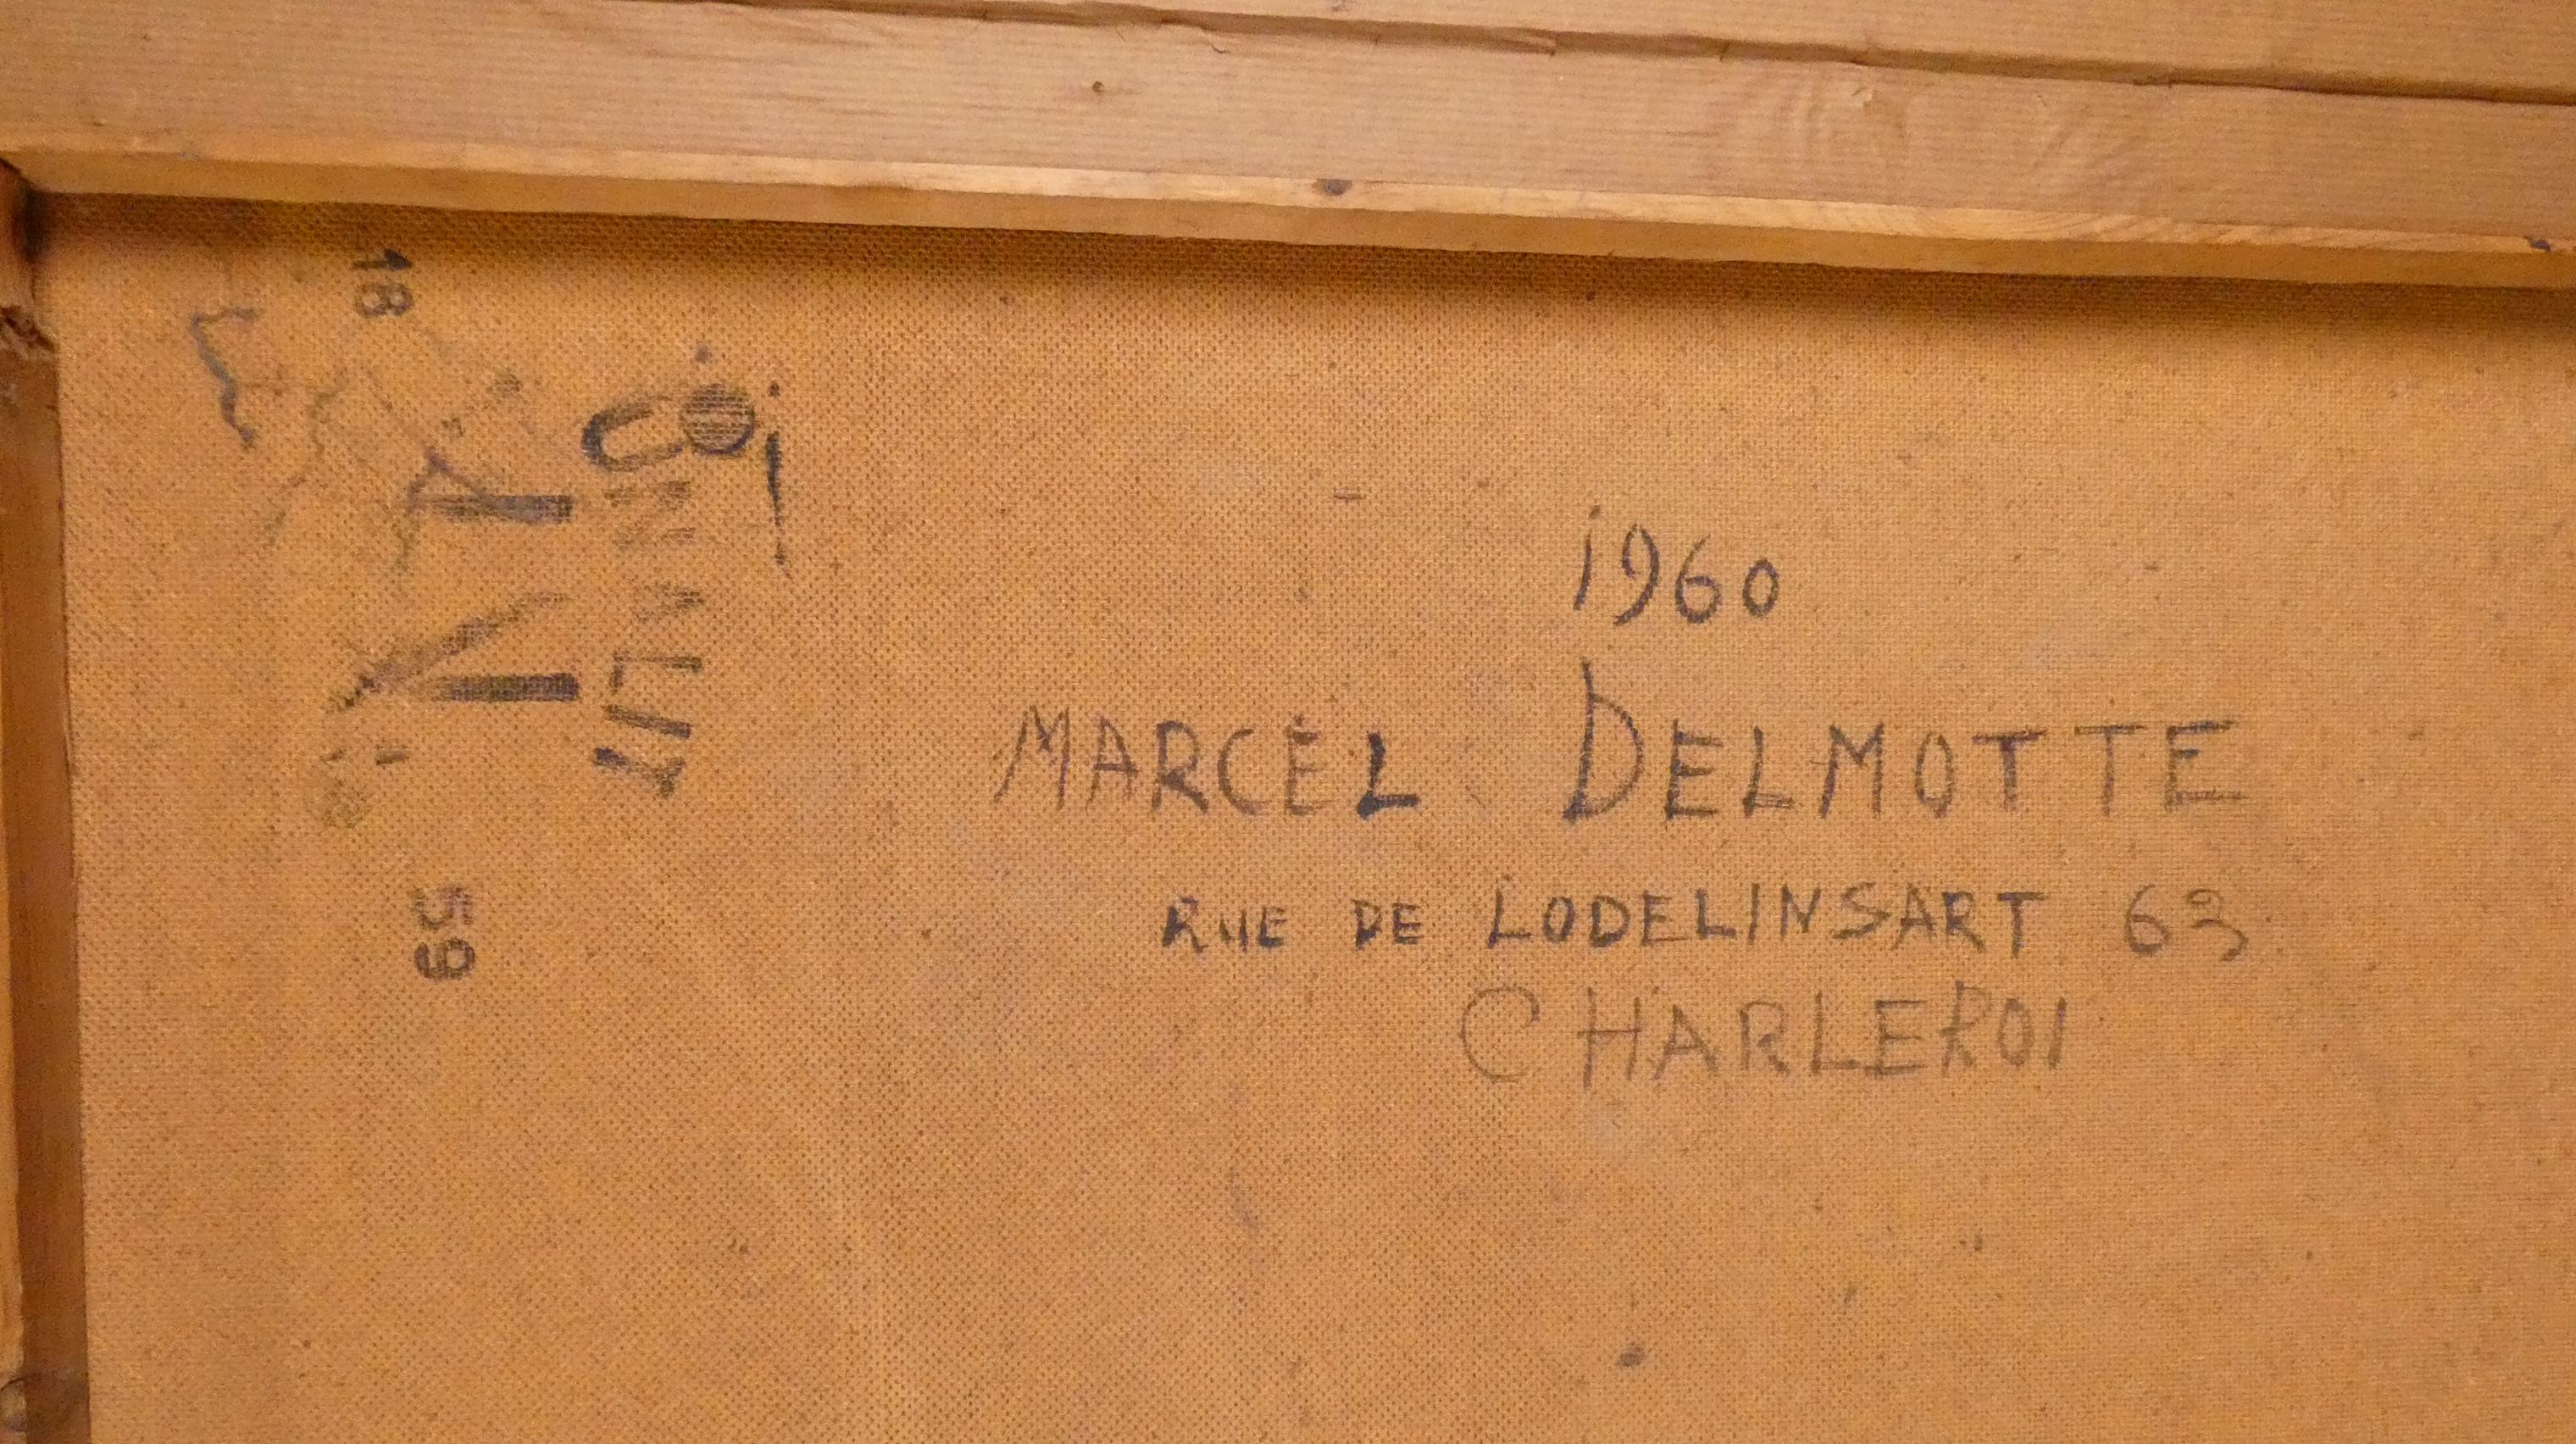 18
UNALIT
59
1960
MARCEL DELMOTTE
RUE DE LODELINSART 63
CHARLEROI